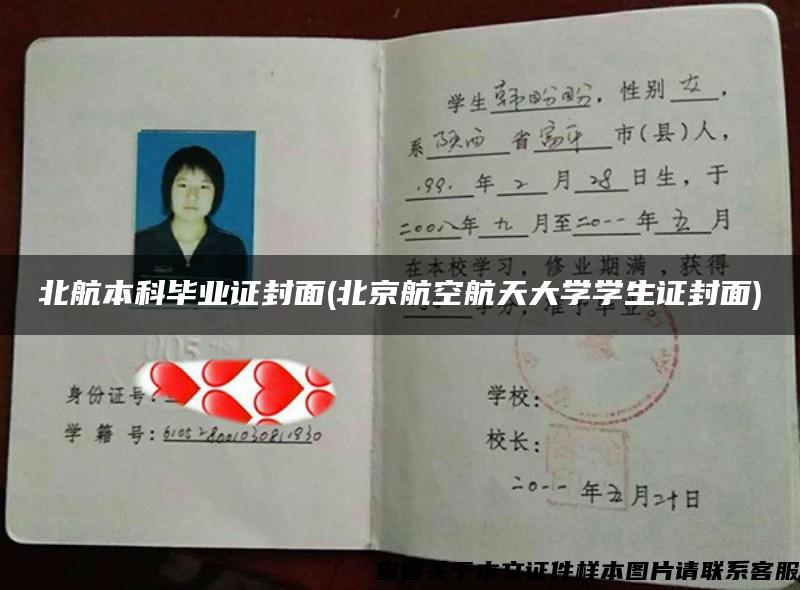 学生韩盼盼，性别女，
系陕西省富平市(县)人，
1991年2月28日生，于
二00八年九月至二0一一年五月
在本校学习，修业期满，获得
学分，准予毕业。
北航本科毕业证封面(北京航空航天大学学生证封面)
005
身份证号：
学籍号：
学校：
校长：
二0一一年五月二十日
查看关于本文证件样本图片请联系客服